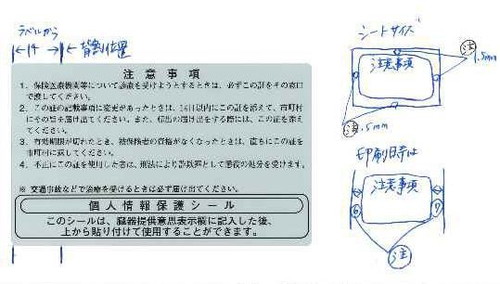 ラベルから
14
背割位置
注意事項
1. 保険医療機関等について診療を受けようとするときは、必ずこの証をその窓口
で渡してください。
2. この証の記載事項に変更があったときは、14日以内にこの証を添えて、市町村
にその旨を届け出てください。また、転出の届け出をする際には、この証を添え
てください。
3. 有効期限が切れたとき、被保険者の資格がなくなったときは、直ちにこの証を
市町村に返してください。
4. 不正にこの証を使用した者は、刑法により詐欺罪として懲役の処分を受けます。
※ 交通事故などで治療を受けるときは必ず届け出てください。
個人情報保護シール
このシールは、臓器提供意思表示欄に記入した後、
上から貼り付けて使用することができます。
シートサイズ
注意事項
注
.5mm
注
.5mm
印刷時は
注意事項
注